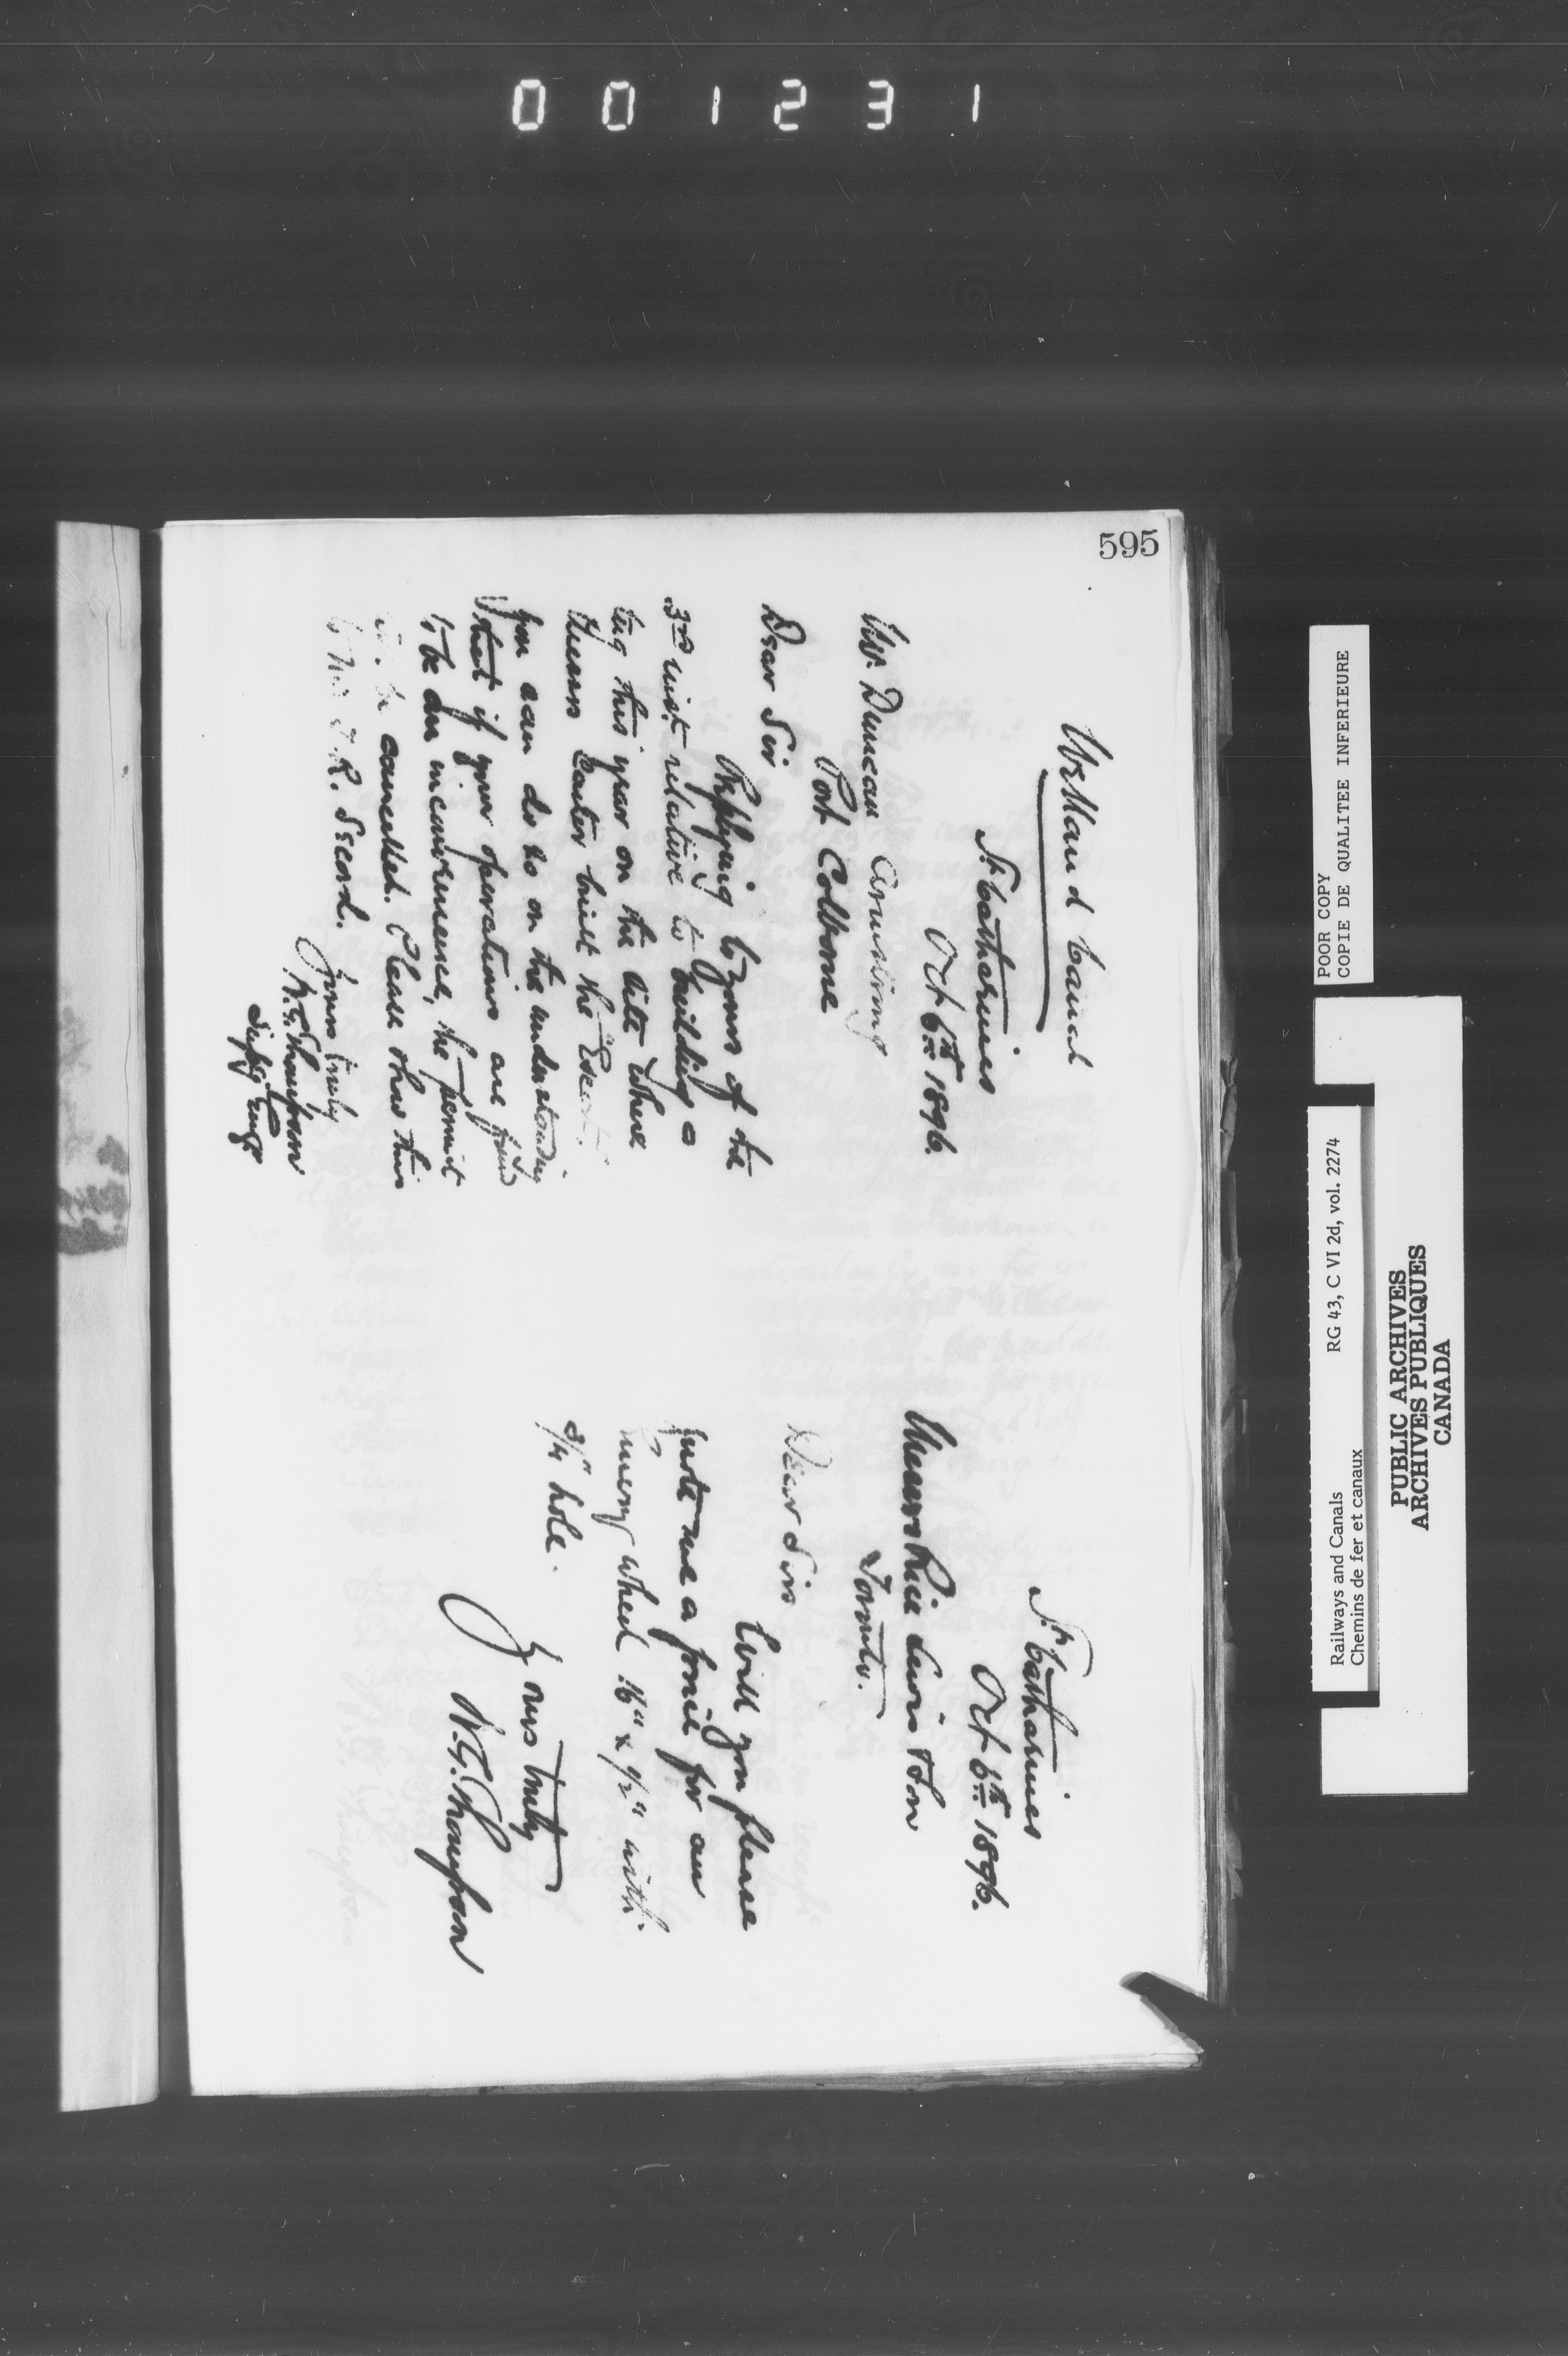 001231
595
Welland Canal
St Catharines
Oct 6th 1896.
Mr. Duncan Armstrong
Port Colborne
Dear Sir
Replying to yours of the
3rd inst. relative to building a
tug this year on the site where
Messrs Carter built the
you can do so on the understanding
that if your operations are found
to be an inconvenience, the permit
cancelled. Please show this
to Mr. R. Second.
Yours truly
W.G. Thompson
Suptg Engr
St Catharines
Oct 6th 1896.
Messrs Rice Lewis & Son
Toronto.
Dear Sirs
Will you please
quote me a price for an
emery wheel 16" x 1/2" with
3/4" hole.
Yours truly
W.G. Thompson
POOR COPY
COPIE DE QUALITEE INFERIEURE
Railways and Canals RG 43, C VI 2d, vol. 2274
Chemins de fer et canaux
PUBLIC ARCHIVES
ARCHIVES PUBLIQUES
CANADA